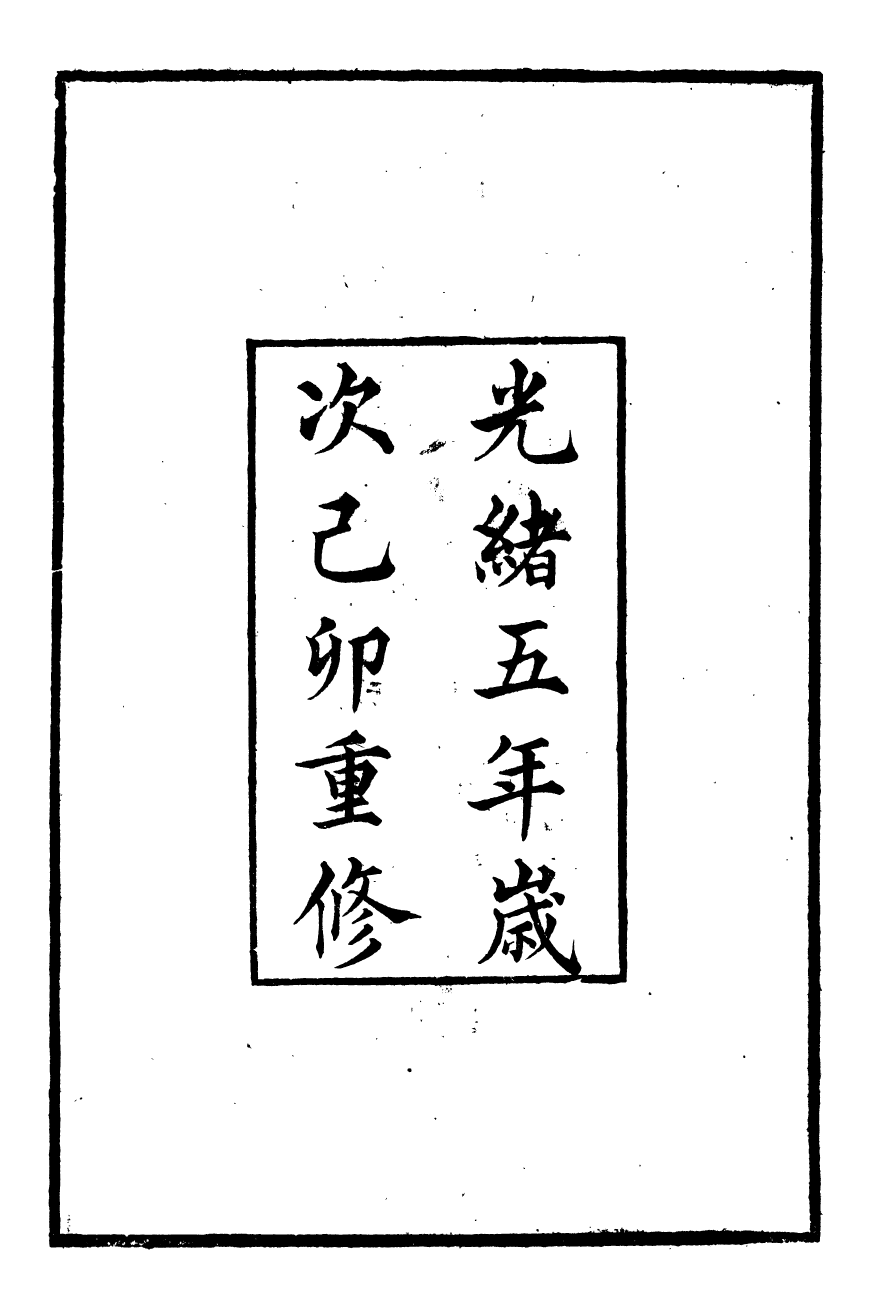 光緒五年歳
次己卯重修